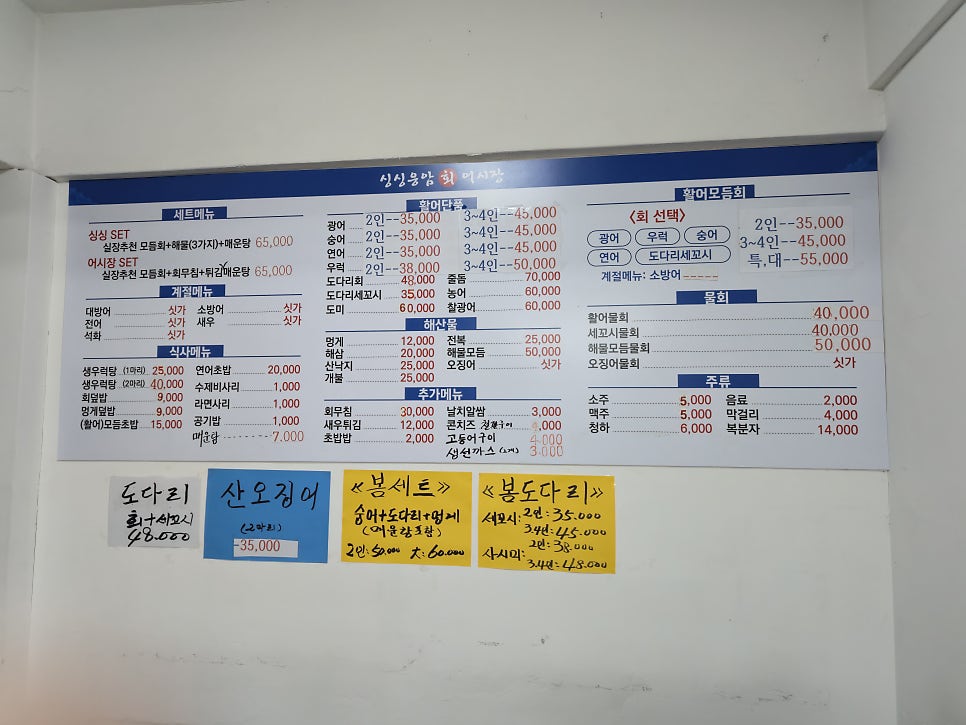 싱싱응암 회 어시장
세트메뉴
싱싱 SET
실장추천 모듬회+해물(3가지)+매운탕 65,000
어시장 SET
실장추천 모듬회+회무침+튀김매운탕 65,000
계절메뉴
대방어 싯가 소방어 싯가
전어 싯가 새우 싯가
석화 싯가
식사메뉴
생우럭탕 (1마리) 25,000 연어초밥 20,000
생우럭탕 (2마리) 40,000 수제비사리 1,000
회덮밥 9,000 라면사리 1,000
멍게덮밥 9,000 공기밥 1,000
(활어)모듬초밥 15,000 매운탕 7,000
활어단품
광어 2인--35,000 3~4인--45,000
숭어 2인--35,000 3~4인--45,000
연어 2인--35,000 3~4인--45,000
우럭 2인--38,000 3~4인--50,000
도다리회 48,000 줄돔 70,000
도다리세꼬시 35,000 농어 60,000
도미 60,000 찰광어 60,000
해산물
멍게 12,000 전복 25,000
해삼 20,000 해물모듬 50,000
산낙지 25,000 오징어 싯가
개불 25,000
추가메뉴
회무침 30,000 날치알쌈 3,000
새우튀김 12,000 콘치즈 ,000
초밥밥 2,000 고등어구이 4,000
생선까스 (2개) 3,000
활어모듬회
<회 선택>
광어 우럭 숭어
연어 도다리세꼬시
계절메뉴: 소방어-----
2인--35,000
3~4인--45,000
특,대--55,000
물회
활어물회 40,000
세꼬시물회 40,000
해물모듬물회 50,000
오징어물회 싯가
주류
소주 5,000 음료 2,000
맥주 5,000 막걸리 4,000
청하 6,000 복분자 14,000
도다리
회+세꼬시
48.000
산오징어
(2마리)
-35,000
≪봄세트≫
숭어+도다리+멍게
(매운탕포함)
2인:50.000 大:60.000
≪봄도다리≫
세꼬시: 2인: 35.000
3.4인: 45.000
2인: 38.000
사시미:
3.4인: 48.000